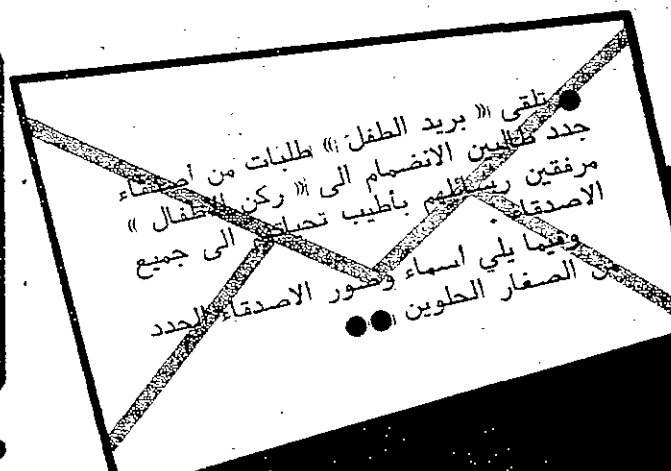 ● تلقى « بريد الطفل » طلبات من أصدقاء
جدد طالبين الانضمام الى « ركن الاطفال »
مرفقين رسائلهم بأطيب تحياتهم الى جميع
الاصدقاء .
وفيما يلي اسماء وصور الاصدقاء الجدد
من الصغار الحلوين ●●